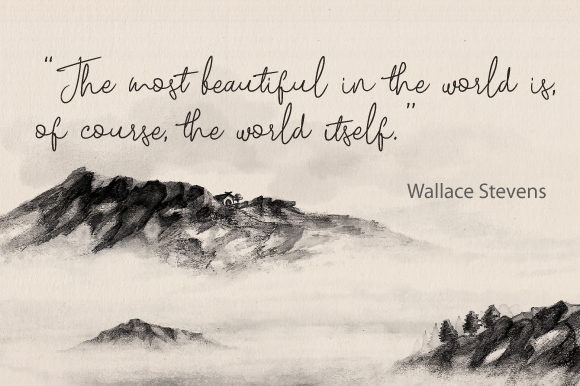 “The most beautiful in the world is,
of course, the world itself.”
Wallace Stevens